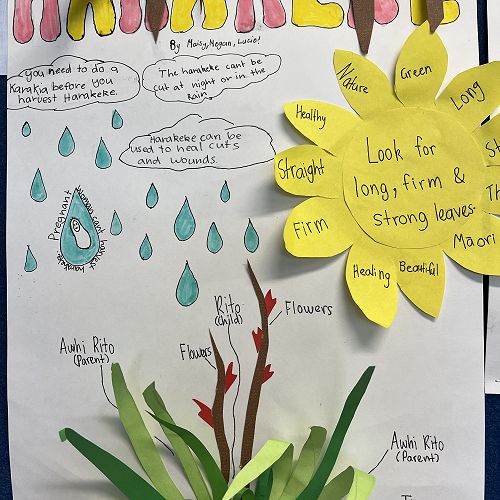 HARAKEKE
By Maisy, Megan, Lucie!
you need to do a
Karakia before you
harvest Harakeke.
The harakeke cant be
cut at night or in the
Rain.
Harakeke can be
used to heal cuts
and wounds.
Pregnant woman cant harvest harakeke.
Healthy
Nature
Green
Long
Straight
Firm
Healing
Beautiful
Maori
Look for
long, firm &
strong leaves.
Rito
(child)
Flowers
Flowers
Awhi Rito
(Parent)
Awhi Rito
(Parent)